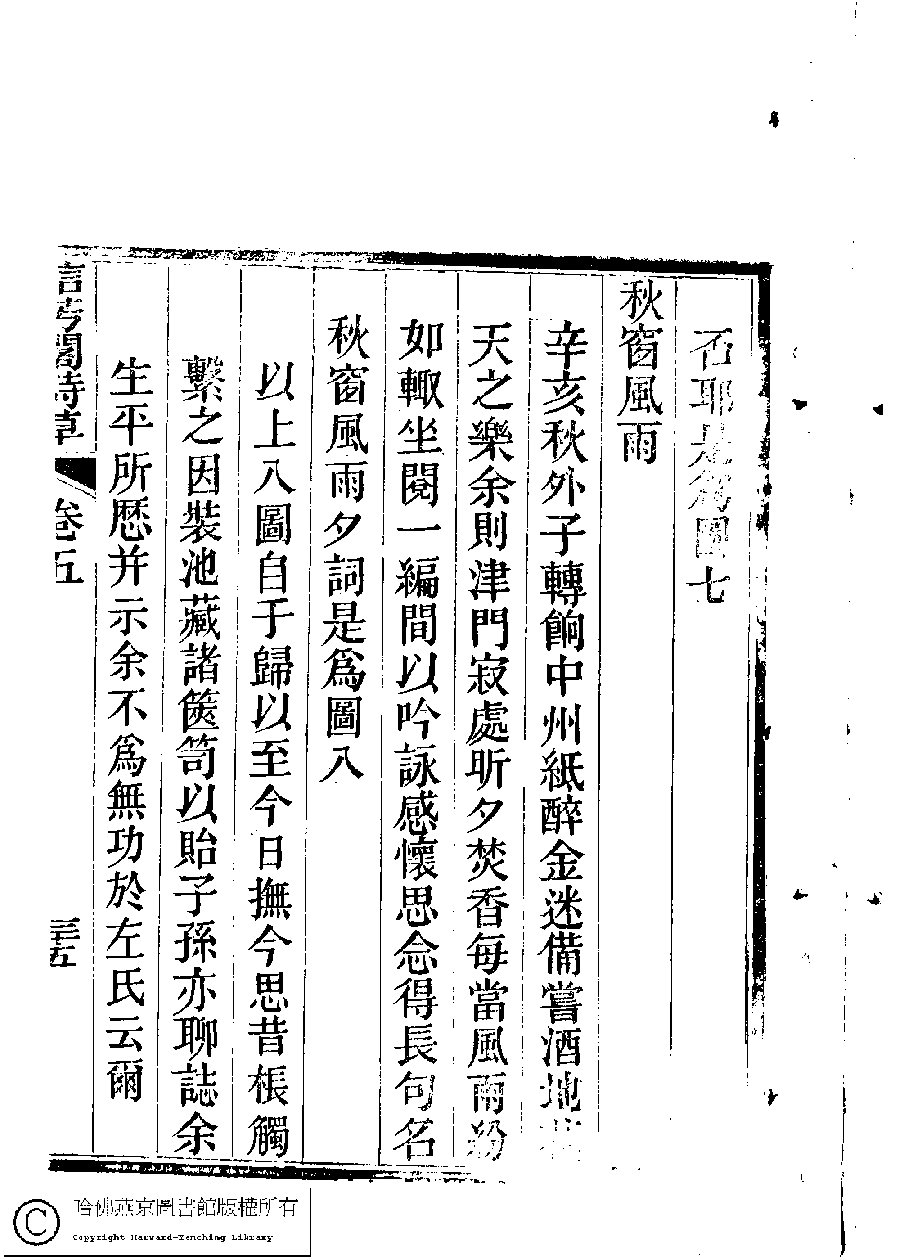 否耶是爲圖七
秋窗風雨
辛亥秋外子轉餉中州紙醉金迷備嘗酒地
天之樂余則津門寂處昕夕焚香每當風雨紛
如輙坐閱一編間以吟詠感懷思念得長句名
秋窗風雨夕詞是爲圖八
以上八圖自于歸以至今日撫今思昔棖觸
繫之因裝池藏諸篋笥以貽子孫亦聊誌余
生平所歷并示余不爲無功於左氏云爾
閣詩草 卷五 三五
哈佛燕京圖書館版權所有
Copyright Harvard-Yenching Library